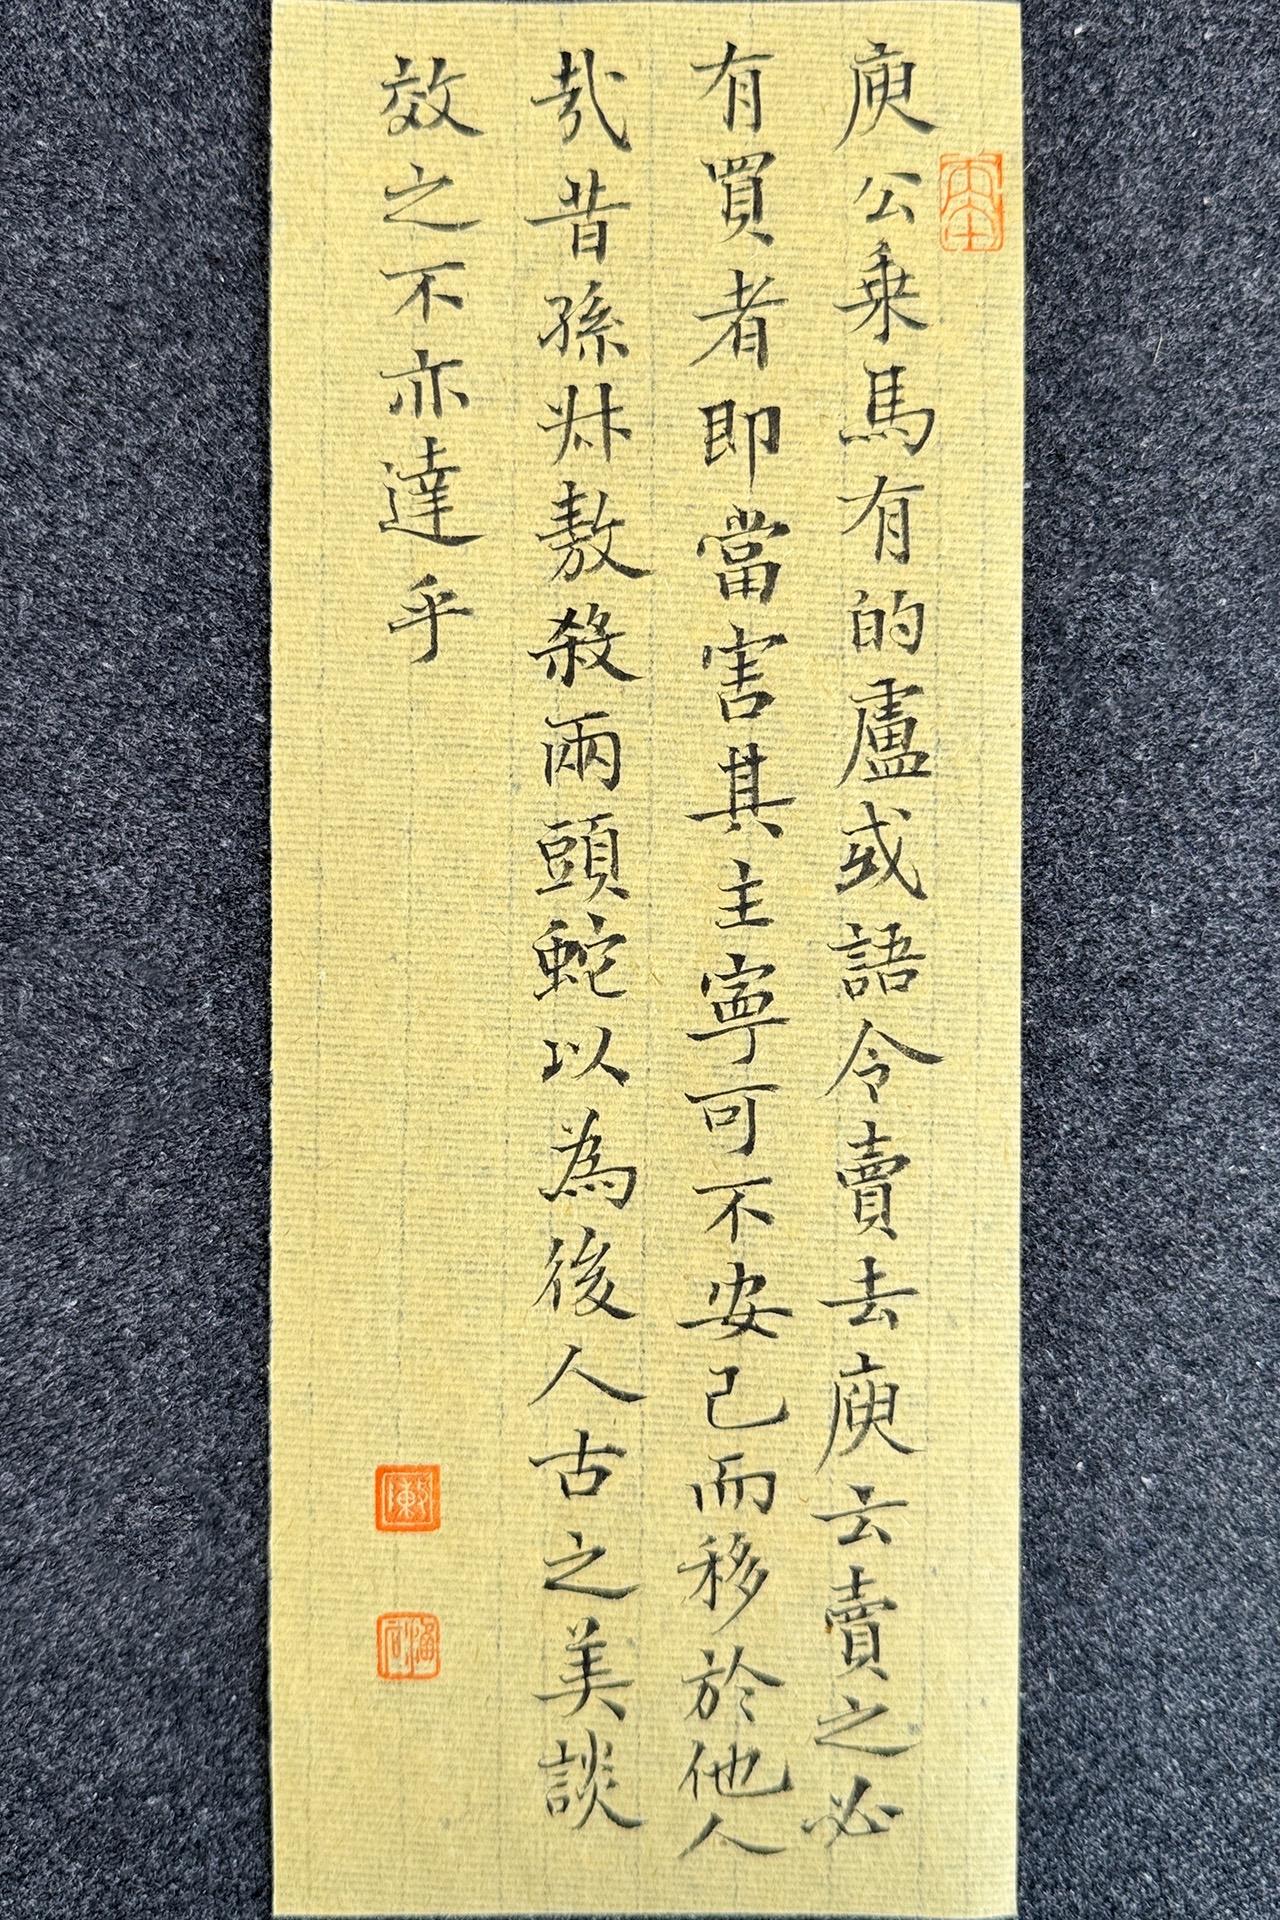 庾公乗馬有的盧或語令賣去庾云賣之必
有買者即當害其主寧可不安己而移於他人
哉昔孫叔敖殺兩頭蛇以為後人古之美談
效之不亦達乎